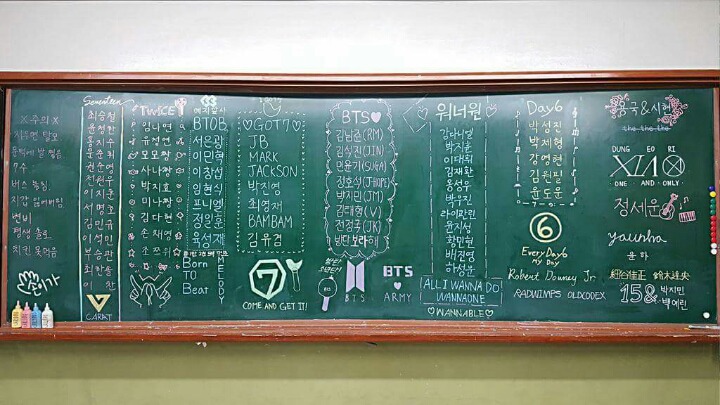 ※주의※
지우면 탈모
문턱에 발 찧음
재수
버스 놓침
지갑 잃어버림
변비
평생 솔로
치킨 못먹음
Seventeen
최승철
윤정한
홍지수
문준휘
권순영
전원우
이지훈
서명호
김민규
이석민
부승관
최한솔
이찬
CARAT
TWICE
임나연
유정연
모모
사나
박지효
미나
김다현
손채영
쯔위
BTOB
서은광
이민혁
이창섭
임현식
프니엘
정일훈
육성재
Born
TO
Beat
MELODY
♡GOT7♡
JB
MARK
JACKSON
박진영
최영재
BAMBAM
김유겸
7
COME AND GET IT!
BTS♥
김남준(RM)
김석진(JIN)
민윤기(SUGA)
정호석(JHOPE)
박지민(JM)
김태형(V)
전정국(JK)
방탄보라해
BTS
BTS
♥
ARMY
워너원♡
강다니엘
박지훈
이대휘
김재환
옹성우
박우진
라이관린
윤지성
황민현
배진영
하성운
ALL I WANNA DO!
WANNAONE
♡WANNABLE♡
Day6
박성진
박제형
강영현
김원필
윤도운
6
Every Day6
My Day
Robert Downey Jr.
RADWIMPS OLDCODEX
용국&시현
the-the-the
DUNG EO RI
XIA
ONE AND ONLY
정세운
younha
윤하
細谷佳正 鈴木達央
15& 박지민
백예린